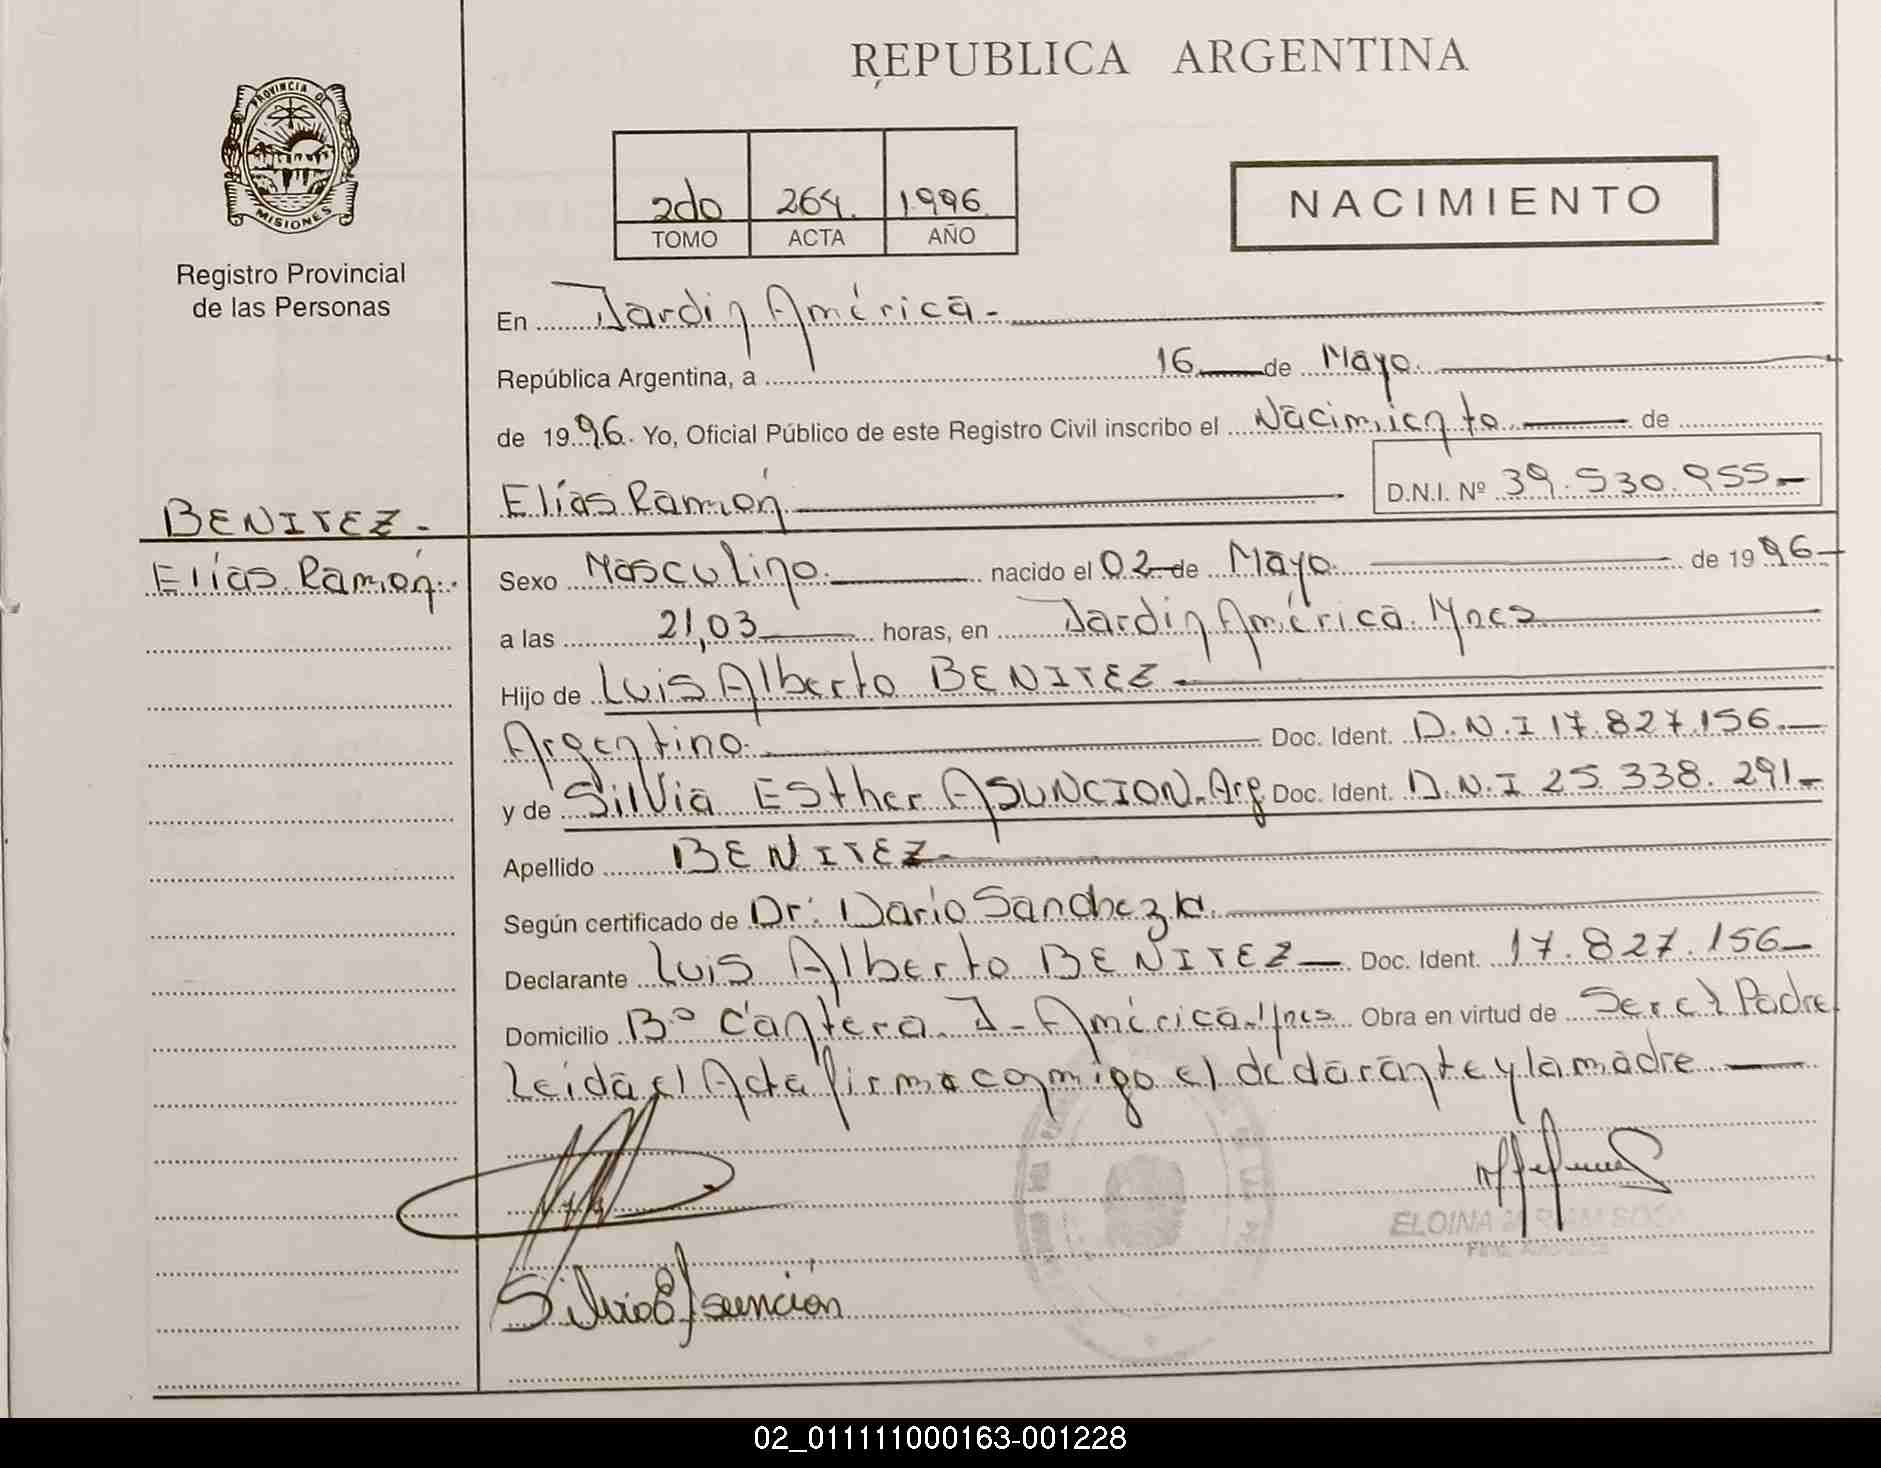 REPUBLICA ARGENTINA
PROVINCIA DE
MISIONES
Registro Provincial
de las Personas
2do 264. 1996
TOMO ACTA AÑO
NACIMIENTO
En Jardin América.-
República Argentina, a 16 de Mayo
de 1996. Yo, Oficial Público de este Registro Civil inscribo el Nacimiento de
Elías Ramón D.N.I. Nº 39.530.955-
BENITEZ-
Elías Ramón.
Sexo Masculino. nacido el 02 de Mayo de 1996
a las 21,03 horas, en Jardin América. Mnes
Hijo de Luis Alberto BENITEZ
Argentino. Doc. Ident. D.N.I 17.827.156.
y de Silvia Esther ASUNCION. Arg Doc. Ident. D.N.I 25.338.291-
Apellido BENITEZ
Según certificado de Dr: Dario Sanchez
Declarante Luis Alberto BENITEZ Doc. Ident. 17.827.156
Domicilio Bº Cantera. J- América. Mnes Obra en virtud de Ser el Padre
Leída el Acta firma conmigo el declarante y la madre
ELOINA
Silvia E Asunción
02_011111000163-001228